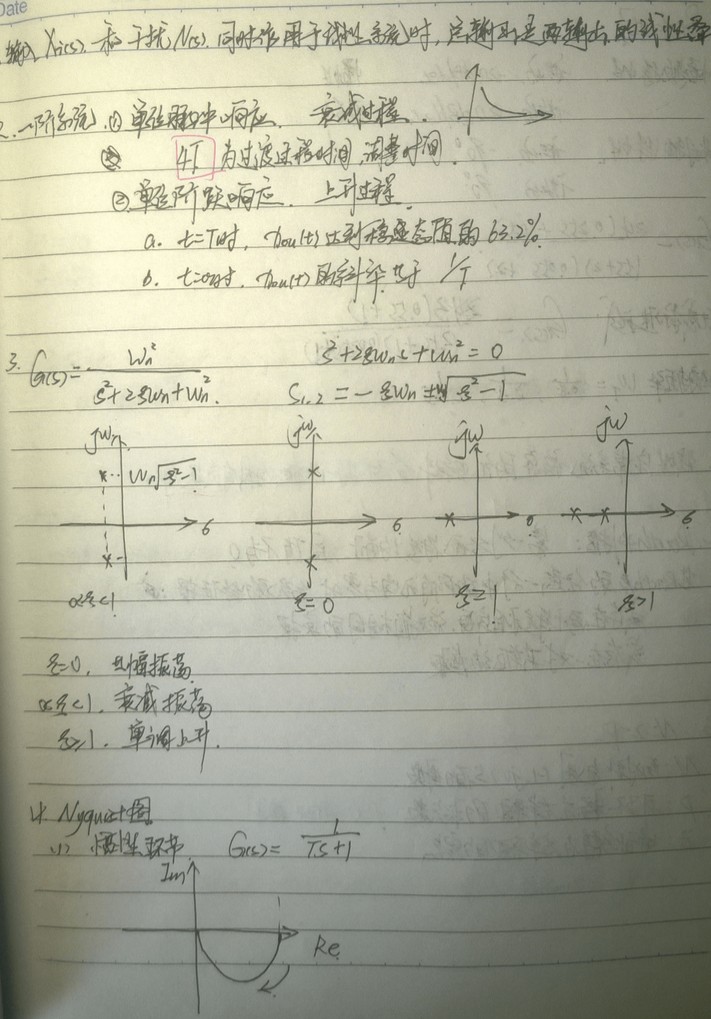 Date
输入 Xi(s) 和干扰 N(s) 同时作用于线性系统时, 总输出是两输出的线性叠
2. 一阶系统 ① 单位脉冲响应. 衰减过程.
4T 为过渡过程时间, 调整时间.
② 单位阶跃响应. 上升过程.
a. t=T时, xou(t) 达到稳态值的 63.2%
b. t=0时, xou(t) 的斜率等于 1/T
3. G(s)= Wn² / s²+2ξWn+Wn². s²+2ξWns+Wn²=0
S1,2 = -ξWn ± √ξ²-1
jw jw jw jw
Wn√ξ²-1
σ σ σ σ
0<ξ<1 ξ=0 ξ=1 ξ>1
ξ=0, 等幅振荡
0<ξ<1, 衰减振荡
ξ≥1, 单调上升.
4. Nyquist图
(1) 惯性环节 G(s)= 1 / Ts+1
Im
Re